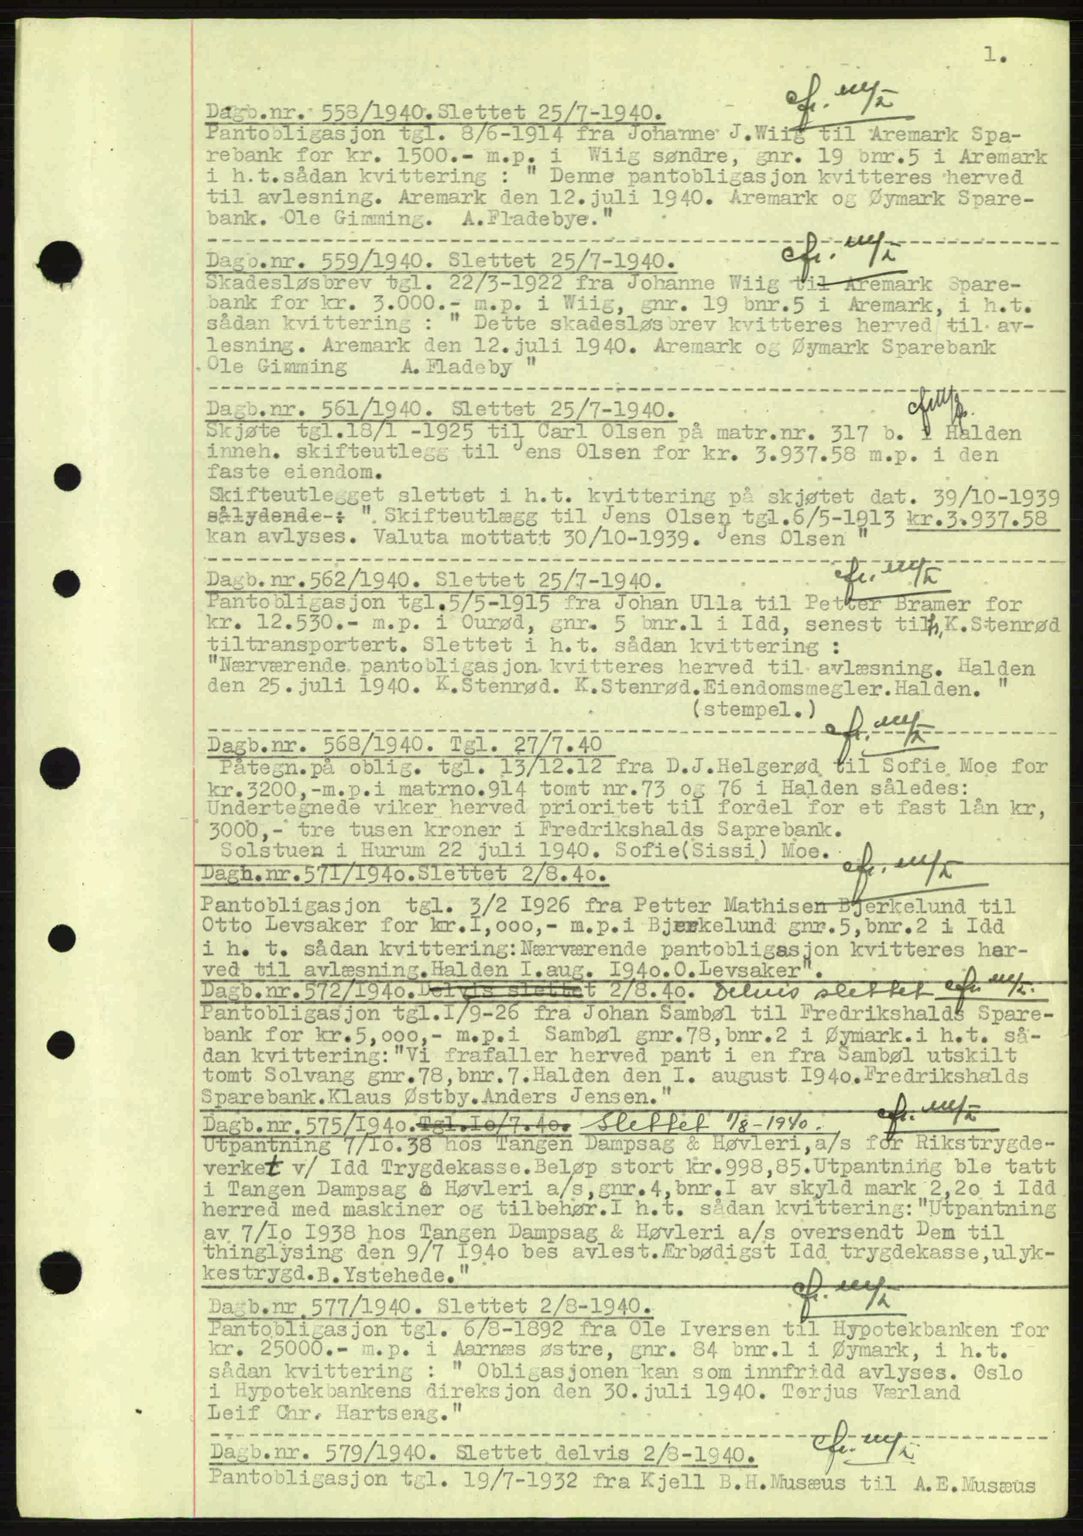 1.
Dagb.nr. 558/1940. Slettet 25/7-1940.
Pantobligasjon tgl. 8/6-1914 fra Johanne J.Wiig til Aremark Spa-
rebank for kr. 1500.- m.p. i Wiig søndre, gnr. 19 bnr.5 i Aremark
i h.t.sådan kvittering : " Denne pantobligasjon kvitteres herved
til avlesning. Aremark den 12.juli 1940. Aremark og Øymark Spare-
bank. Ole Gimming. A.Fladebye."
Dagb.nr. 559/1940. Slettet 25/7-1940.
Skadesløsbrev tgl. 22/3-1922 fra Johanne Wiig til Aremark Spare-
bank for kr. 3.000.- m.p. i Wiig, gnr. 19 bnr.5 i Aremark, i h.t.
sådan kvittering : " Dette skadesløsbrev kvitteres herved til av-
lesning. Aremark den 12.juli 1940. Aremark og Øymark Sparebank
Ole Gimming A.Fladeby "
Dagb.nr. 561/1940. Slettet 25/7-1940.
Skjøte tgl.18/1 -1925 til Carl Olsen på matr.nr. 317 b. i Halden
inneh. skifteutlegg til Jens Olsen for kr. 3.937.58 m.p. i den
faste eiendom.
Skifteutlegget slettet i h.t. kvittering på skjøtet dat. 39/10-1939
sålydende : " Skifteutlægg til Jens Olsen tgl.6/5-1913 kr.3.937.58
kan avlyses. Valuta mottatt 30/10-1939. Jens Olsen "
Dagb.nr.562/1940. Slettet 25/7-1940.
Pantobligasjon tgl.5/5-1915 fra Johan Ulla til Petter Bramer for
kr. 12.530.- m.p. i Ourød, gnr. 5 bnr.1 i Idd, senest til K.Stenrød
tiltransportert. Slettet i h.t. sådan kvittering :
"Nærværende pantobligasjon kvitteres herved til avlæsning. Halden
den 25.juli 1940. K.Stenrød. K.Stenrød.Eiendomsmegler.Halden. "
(stempel.)
Dagb.nr. 568/1940. Tgl. 27/7.40
Påtegn.på oblig. tgl. 13/12.12 fra D.J.Helgerød til Sofie Moe for
kr.3200,-m.p.i matrno.914 tomt nr.73 og 76 i Halden således:
Undertegnede viker herved prioritet til fordel for et fast lån kr,
3000,- tre tusen kroner i Fredrikshalds Saprebank.
Solstuen i Hurum 22 juli 1940. Sofie(Sissi) Moe.
Dagh.nr.571/194o.Slettet 2/8.4o.
Pantobligasjon tgl. 3/2 I926 fra Petter Mathisen Bjerkelund til
Otto Levsaker for kr.I,ooo,- m.p.i Bjerkelund gnr.5,bnr.2 i Idd
i h. t. sådan kvittering:Nærværende pantobligasjon kvitteres her-
ved til avlæsning.Halden I.aug. I94o.O.Levsaker".
Dagb.nr.572/194o.Delvis slettet 2/8.4o. Delvis slettet
Pantobligasjon tgl.I/9-26 fra Johan Sambøl til Fredrikshalds Spare-
bank for kr.5,ooo,- m.p.i Sambøl gnr.78,bnr.2 i Øymark.i h.t. så-
dan kvittering:"Vi frafaller herved pant i en fra Sambøl utskilt
tomt Solvang gnr.78,bnr.7.Halden den I. august I94o.Fredrikshalds
Sparebank.Klaus Østby.Anders Jensen."
Dagb.nr.575/I94o.Tgl.Io/7.4o. Slettet 1/8-1940.
Utpantning 7/Io.38 hos Tangen Dampsag & Høvleri,a/s for Rikstrygde-
verket v/ Idd Trygdekasse.Beløp stort kr.998,85.Utpantning ble tatt
i Tangen Dampsag & Høvleri a/s,gnr.4,bnr.I av skyld mark 2,2o i Idd
herred med maskiner og tilbehør.I h.t. sådan kvittering:"Utpantning
av 7/Io I938 hos Tangen Dampsag & Høvleri a/s oversendt Dem til
thinglysing den 9/7 I94o bes avlest.Ærbødigst Idd trygdekasse,ulyk-
kestrygd.B.Ystehede."
Dagb.nr.577/1940. Slettet 2/8-1940.
Pantobligasjon tgl. 6/8-1892 fra Ole Iversen til Hypotekbanken for
kr. 25000.- m.p. i Aarnæs østre, gnr. 84 bnr.1 i Øymark, i h.t.
sådan kvittering : " Obligasjonen kan som innfridd avlyses. Oslo
i Hypotekbankens direksjon den 30.juli 1940. Torjus Værland
Leif Chr. Hartseng."
Dagb.nr. 579/1940. Slettet delvis 2/8-1940.
Pantobligasjon tgl. 19/7-1932 fra Kjell B.H.Musæus til A.E.Musæus